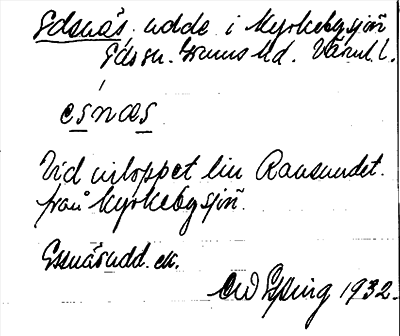 Edsnäs. udde i Kyrkebysjön
Eds sn. Grums hd. Värml. l.
esnæs
Vid utloppet till Ransundet.
från Kyrkebysjön.
Esnäsudd. ek.
1932.